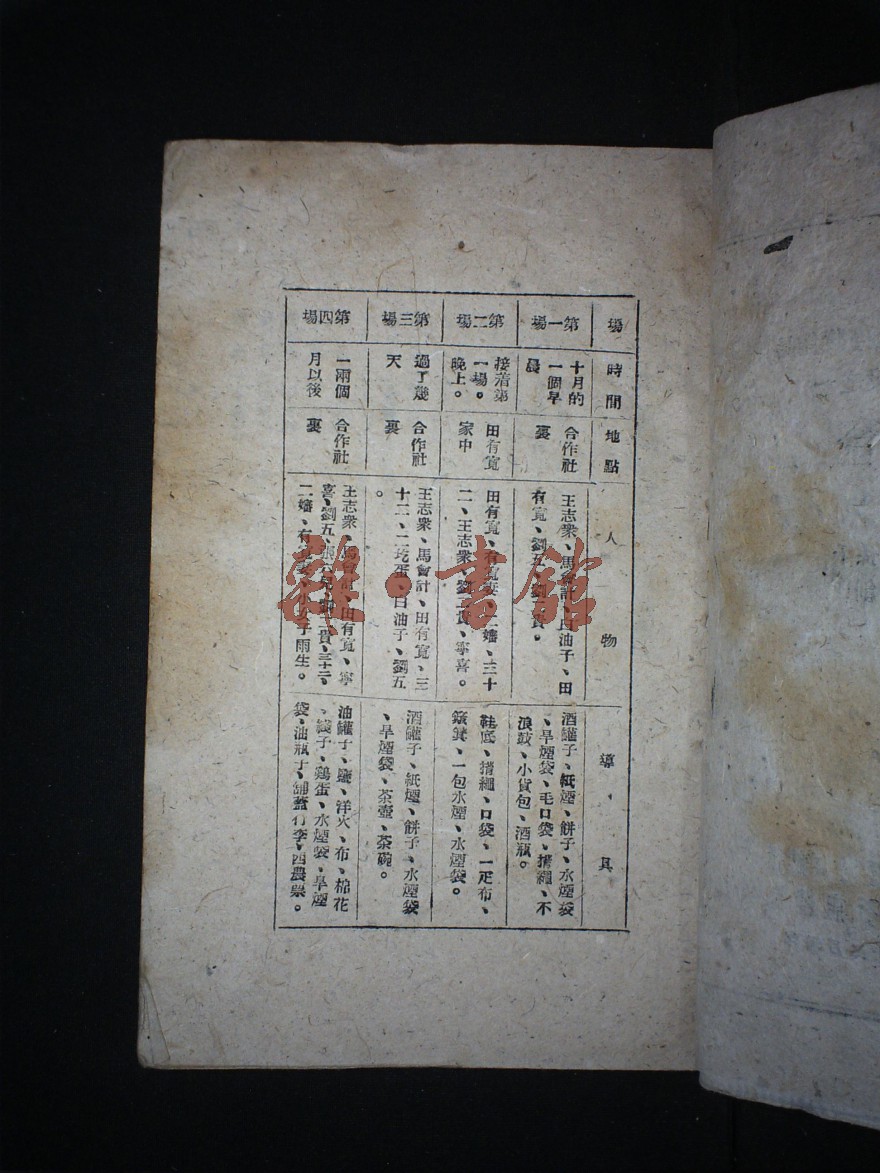 場
時間
地點
人物
導具
第一場
十月的
一個早
晨
合作社
裏
王志衆、馬會計、白油子、田
有寬、劉五、劉二貴。
酒罐子、紙煙、餅子、水煙袋
、旱煙袋、毛口袋、揹繩、不
浪鼓、小貨包、酒瓶。
第二場
接着第
一場。
晚上。
田有寬
家中
田有寬、有寬妻、二嬸、三十
二、王志衆、劉二貴、寧喜。
鞋底、揹繩、口袋、一疋布、
簸箕、一包水煙、水煙袋。
第三場
過了幾
天
合作社
裏
王志衆、馬會計、田有寬、三
十二、二圪蛋、白油子、劉五
。
酒罐子、紙煙、餅子、水煙袋
、旱煙袋、茶壺、茶碗。
第四場
一兩個
月以後
合作社
裏
王志衆、馬會計、田有寬、寧
喜、劉五、劉二貴、三十二、
二嬸、有寬妻、小女子雨生。
油罐子、鹽、洋火、布、棉花
、綫子、鷄蛋、水煙袋、旱煙
袋、油瓶子、鋪蓋行李、西農票。
雜·書館